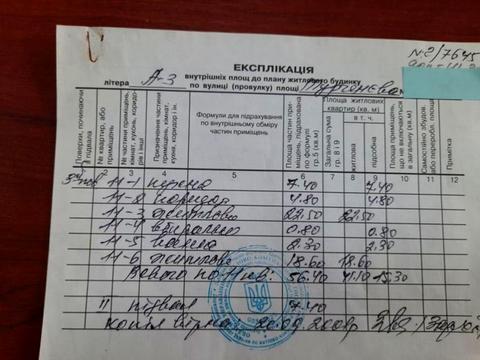 №2/7645
ЕКСПЛІКАЦІЯ
внутрішніх площ до плану житлового будинку
літера А-3 по вулиці (провулку) площі
Поверхи, починаючи з підвалу
№ квартир, або приміщень
№ частини приміщень, кімнат, кухонь, коридорів і інші
Призначення частини приміщень, кімнат, кухонь, коридор і ін.
Формули для підрахування по внутрішньому обміру частин приміщень
Площа частин приміщень, підрахована по формулі гр. 5 (кв.м)
Площа житлових квартир (кв. м)
Загальна сума гр. 8 і 9
в т. ч.
житлова
підсобна
Площа приміщень, що не включаються в загальну (кв. м)
Самостійно збудов. або переробл. площ
Примітка
3 4 5 6 7 8 9 10 11 12
11-1 кухня 7.40 7.40
11-2 коридор 4.80 4.80
11-3 житлова 22.50 22.50
11-4 0.80 0.80
11-5 2.30 2.30
11-6 житлова 18.60 18.60
Всього по 56.40 41.10 15.30
11 підвал 7.40
копія вірна